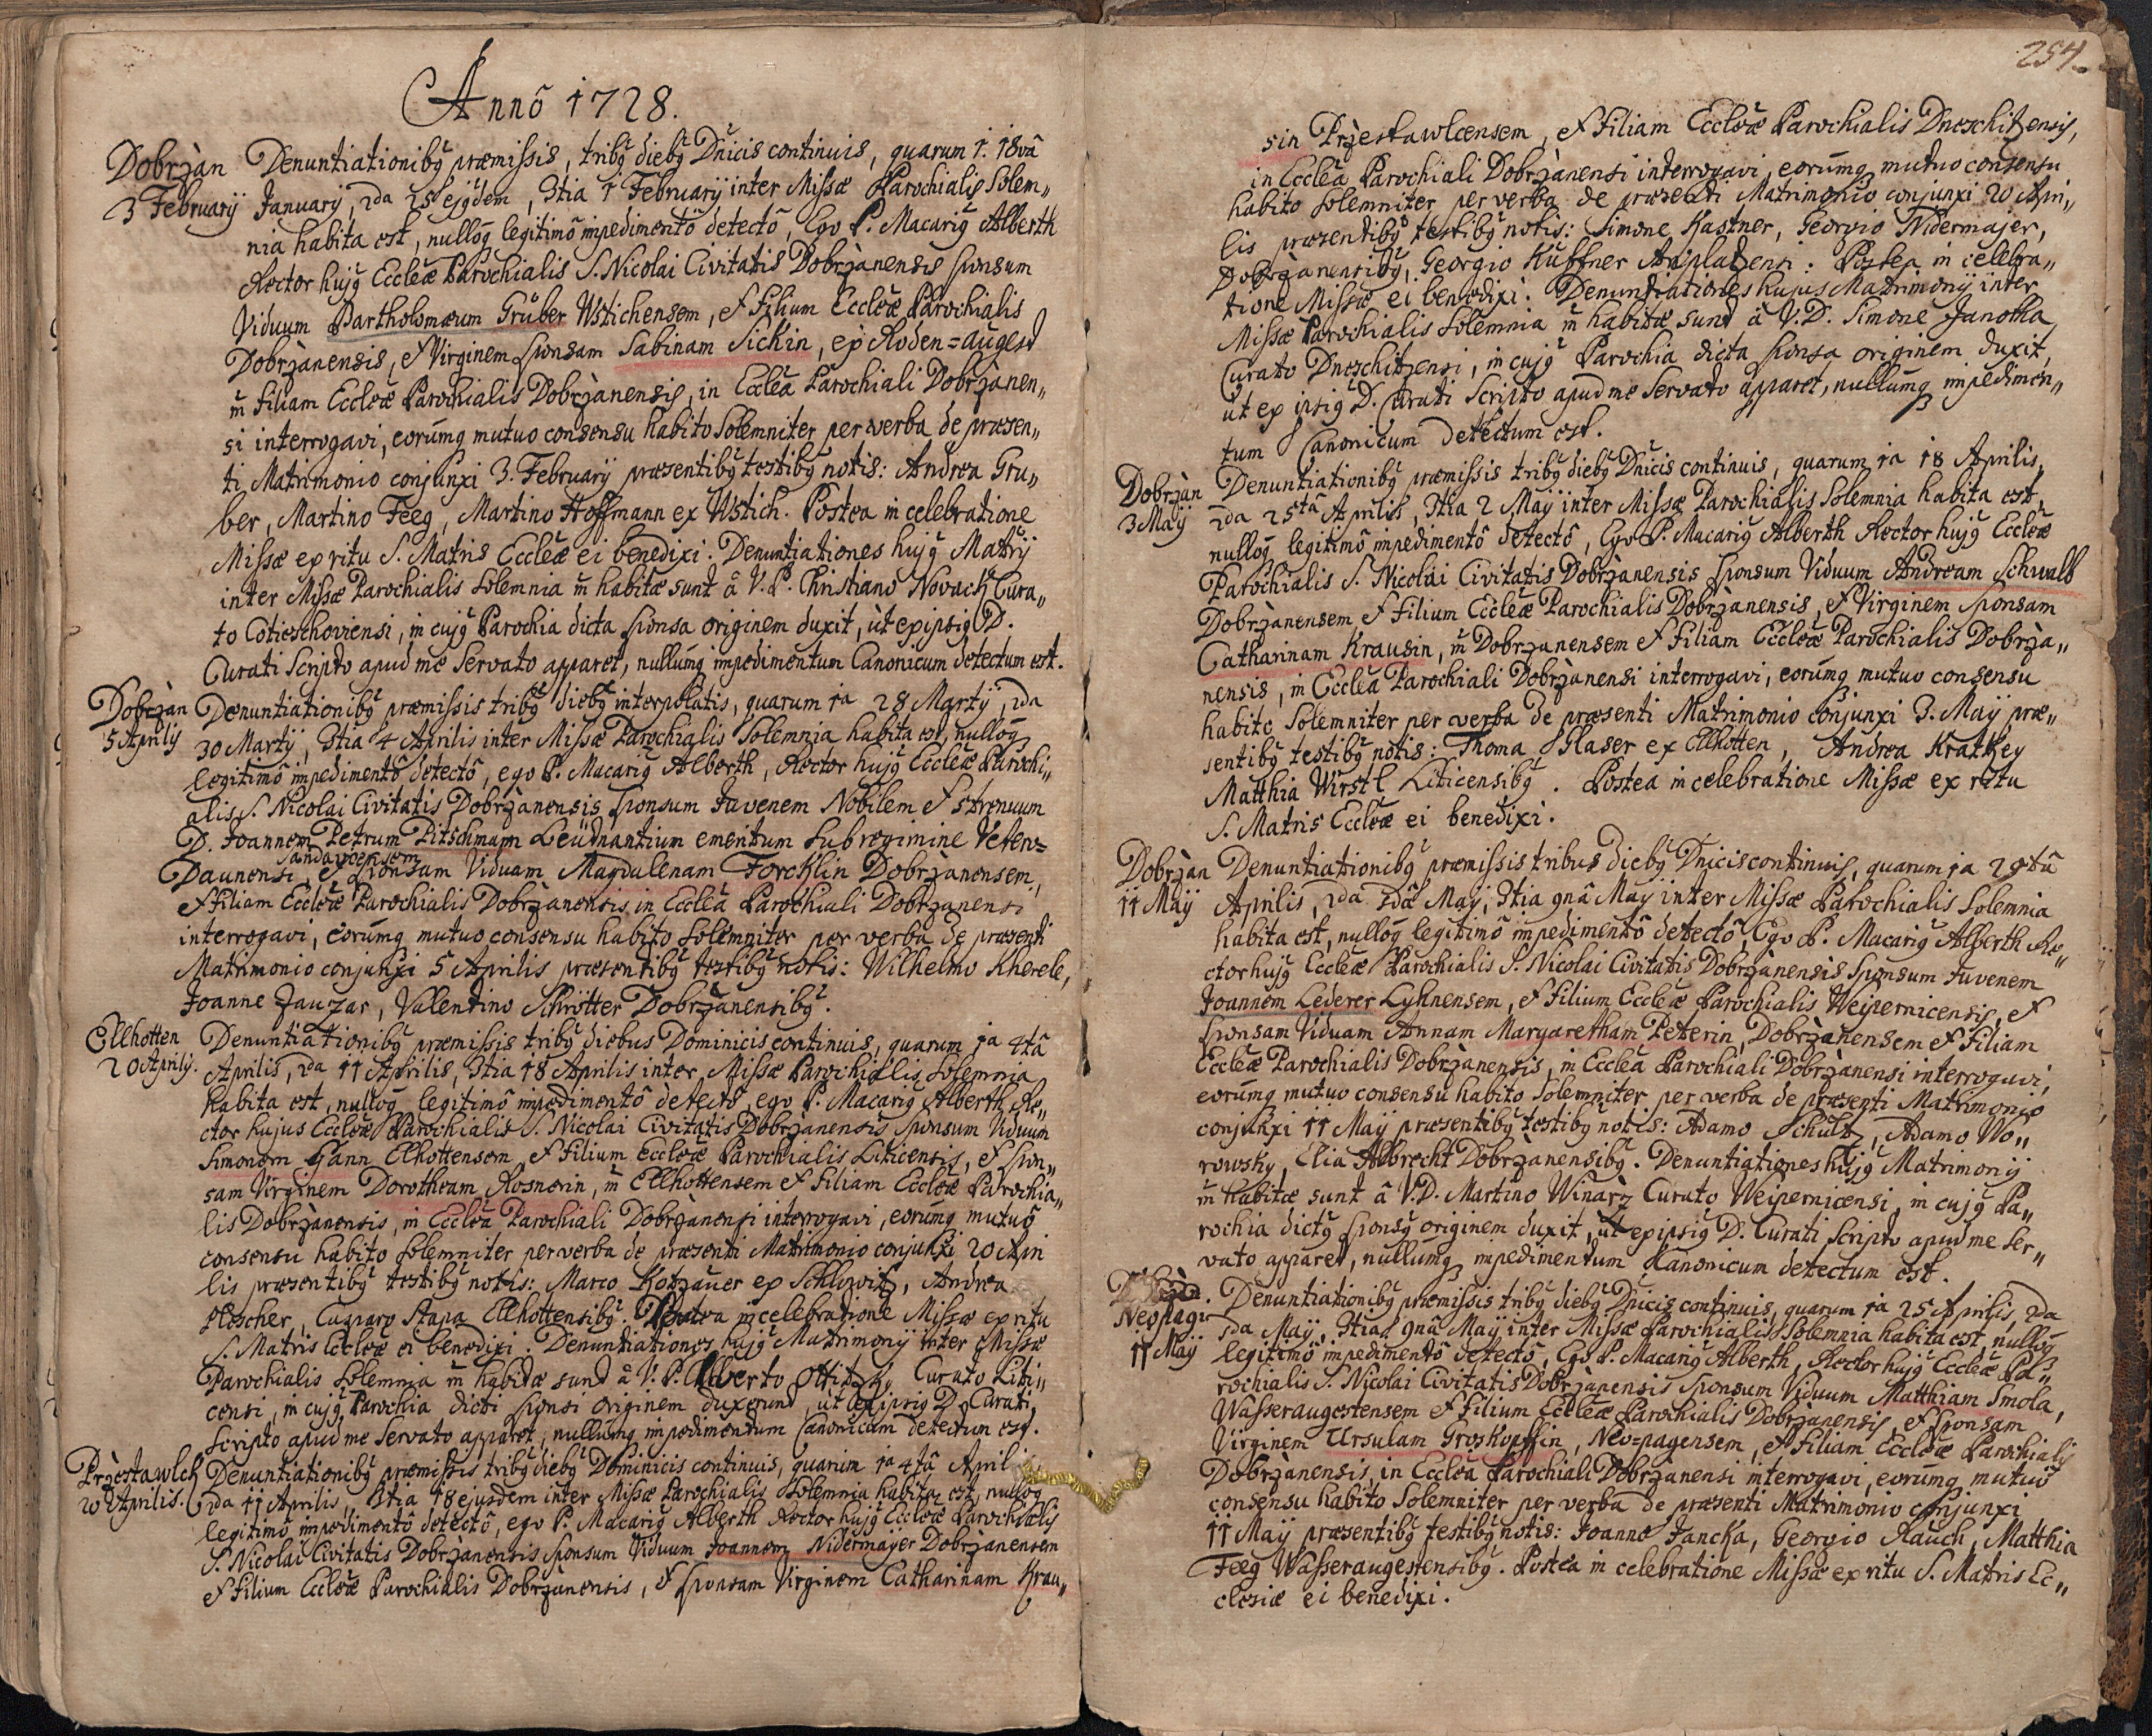 Annô 1728.
Dobrzàn
3 Februarij
Denuntiationibg præmissis, tribg diebg Dnicis continuis, quarum 1. 18vâ
Januarij, 2da 25 ejgdem, 3tia 1 Februarij inter Missæ Parochialis Solem„
nia habita est, nullôq legitimô impedimentô detectô, Ego P. Macarig Alberth
Rector hujg Eccleæ Parochialis S. Nicolai Civitatis Dobrzànensis sponsum
Viduum Bartholomæum Gruber Wstichensem, et Filium Eccleæ Parochialis
Dobrzànensis, et Virginem sponsam Sabinam Sickin, ex Roden=augest
m̃ Filiam Eccleæ Parochialis Dobrzànensis, in Ecclea Parochiali Dobrzànen„
si interrogavi, eorumq mutuo consensu habito Solemniter per verba de præsen„
ti Matrimonio conjunxi 3. Februarij præsentibg testibg notis: Andrea Gru„
ber, Martino Feeg, Martino Hoffmann ex Wstich. Postea in celebratione
Missæ ex ritu S. Matris Eccleæ ei benedixi. Denuntiationes hujg Matrij
inter Missæ Parochialis Solemnia m̃ habitæ sunt â V. P. Christiano Novack Cura„
to Cotieschoviensi, in cujg Parochia dicta sponsa originem duxit, ùt ex ipsig D.
Curati Scripto apud me Servato apparet, nullumq impedimentum Canonicum detectum est.
Dobrzàn
5 Aprilij
Denuntiationibg præmissis tribg diebg interpolatis, quarum 1a 28 Martij, 2da
30 Martij, 3tia 4 Aprilis inter Missæ Parochialis Solemnia habita est, nullôq
legitimô impedimentô detectô, ego P. Macarig Alberth, Rector hujg Eccleæ Parochi„
alis S. Nicolai Civitatis Dobrzànensis sponsum Juvenem Nobilem et strenuum
D. Joannem Petrum Pitschmann Leütnantium emeritum sub regimine Veten=
Daunensi, et sponsam Viduam Magdalenam Forcklin Dobrzànensem,
et Filiam Eccleæ Parochialis Dobrzànensis in Ecclea Parochiali Dobrzanensi
interrogavi, eorumq mutuo consensu habito Solemniter per verba de præsenti
Matrimonio conjunxi 5 Aprilis præsentibg testibg notis: Wilhelmo Kherele,
Joanne Zauzar, Vallentino Schrötter Dobrzànensibg.
Ellhotten
20 Aprilij.
Denuntiationibg præmissis tribg diebus Dominicis continuis, quarum 1a 4tâ
Aprilis, 2da 11 Aprilis, 3tia 18 Aprilis inter Missæ Parochialis Solemnia
habita est, nullôq legitimô impedimentô detectô, ego P. Macarig Alberth Re„
ctor hujus Eccleæ Parochialis S. Nicolai Civitatis Dobrzànensis sponsum Viduum
Simonem Hann Ellhottensem, et Filium Eccleæ Parochialis Liticensis, et spon„
sam Virginem Dorotheam Rosnerin, m̃ Ellhottensem et Filiam Eccleæ Parochia„
lis Dobrzànensis, in Ecclea Parochiali Dobrzànensi interrogavi, eorumq mutuô
consensu habito Solemniter per verba de præsenti Matrimonio conjunxi 20 Apri
lis præsentibg testibg notis: Marco Kotzauer ex Schlowitz, Andrea
Hoscher, Casparo Ellhottensibg. Postea in celebratione Missæ ex ritu
S. Matris Eccleæ ei benedixi. Denuntiationes hujg Matrimonij inter Missæ
Parochialis Solemnia m̃ habitæ sunt â V. P. Curato Liti„
censi, in cujg Parochia dicti sponsi originem duxerunt, ùt ex ipsig D. Curati
Scripto apud me Servato apparet, nullumq impedimentum Canonicum detectum est.
Przestawlck
20 Aprilis.
Denuntiationibg præmissis tribg diebg Dominicis continuis, quarum 1a 4tâ April
2da 11 Aprilis, 3tia 18 ejusdem inter Missæ Parochialis Solemnia habita est, nullôq
legitimô impedimentô detectô, ego P. Macarig Alberth Rector hujg Eccleæ Parochialis
S. Nicolai Civitatis Dobrzànensis sponsum Viduum Joannem Nidermayer Dobrzànensem
et Filium Eccleæ Parochialis Dobrzànensis, et sponsam Virginem Catharinam Krau„
254.
sin Przestawlcensem, et Filiam Eccleæ Parochialis Dneschitzensis,
in Ecclea Parochiali Dobrzànensi interrogavi, eorumq mutuo consensu
habito Solemniter per verba de præsenti Matrimonio conjunxi 20 Apri„
lis præsentibg testibg notis: Simone Kastner, Georgio Nidermajer,
Dobrzànensibg, Georgio Küffner Anplatzensi: Postea in celebra„
tione Missæ ei benedixi. Denuntiationes hujus Matrimonij inter
Missæ Parochialis Solemnia m̃ habitæ sunt â V. D. Simone Janotka
Curato Dneschitzensi, in cujg Parochia dicta sponsa originem duxit,
ut ex ipsig D. Curati Scripto apud me Servato apparet, nullumq impedimen„
tum Canonicum detectum est.
Dobrzàn
3 Maij
Denuntiationibg præmissis tribg diebg Dnicis continuis, quarum 1a 18 Aprilis,
2da 25tâ Aprilis, 3tia 2 Maij inter Missæ Parochialis Solemnia habita est,
nullôq legitimô impedimentô detectô, Ego P. Macarig Alberth Rector hujg Eccleæ
Parochialis S. Nicolai Civitatis Dobrzànensis sponsum Viduum Andream Schwalb
Dobrzànensem et Filium Eccleæ Parochialis Dobrzànensis, et Virginem sponsam
Catharinam Krausin, m̃ Dobrzanensem et Filiam Eccleæ Parochialis Dobrza„
nensis, in Ecclea Parochiali Dobrzànensi interrogavi, eorumq mutuo consensu
habito Solemniter per verba de præsenti Matrimonio conjunxi 3. Maij præ„
sentibg testibg notis: Thoma Glaser ex Ellhotten, Andrea Kratkey
Matthia Wirstl Liticensibg. Postea in celebratione Missæ ex ritu
S. Matris Eccleæ ei benedixi.
Dobrzàn
11 Maij
Denuntiationibg præmissis tribus diebg Dnicis continuis, quarum 1a 25tâ
Aprilis, 2da 2dâ Maij, 3tia 9nâ Maij inter Missæ Parochialis Solemnia
habita est, nullôq legitimô impedimentô detectô, Ego P. Macarig Alberth Re„
ctor hujg Eccleæ Parochialis S. Nicolai Civitatis Dobrzànensis sponsum Juvenem
Joannem Lederer Lyhnensem, et Filium Eccleæ Parochialis Weipernicensis, et
sponsam Viduam Annam Margaretham Peterin, Dobrzànensem et Filiam
Eccleæ Parochialis Dobrzànensis, in Ecclea Parochiali Dobrzànensi interrogavi,
eorumq mutuo consensu habito Solemniter per verba de præsenti Matrimonio
conjunxi 11 Maij præsentibg testibg notis: Adamo Schultz, Adamo Wo„
rowsky, Elia Albrecht Dobrzànensibg. Denuntiationes hujg Matrimonij
m̃ habitæ sunt â V. D. Martino Winarz Curato Weipernicensi, in cujg Pa„
rochia dictg sponsg originem duxit, ùt ex ipsig D. Curati Scripto apud me Ser„
vato apparet, nullumq impedimentum Kanonicum detectum est.
Neopagi
11 Maij
Denuntiationibg præmissis tribg diebg Dnicis continuis, quarum 1a 25 Aprilis, 2da
2da Maij, 3tia 9nâ Maij inter Missæ Parochialis Solemnia habita est, nullôq
legitimô impedimentô detectô, Ego P. Macarig Alberth, Rector hujg Eccleæ Pa„
rochialis S. Nicolai Civitatis Dobrzànensis sponsum Viduum Matthiam Smola,
Wasseraugestensem et Filium Eccleæ Parochialis Dobrzànensis, et sponsam
Virginem Ursulam Groskopffin, Neo=pagensem, et Filiam Eccleæ Parochialis
Dobrzànensis, in Ecclea Parochiali Dobrzànensi interrogavi, eorumq mutuô
consensu habito Solemniter per verba de præsenti Matrimonio conjunxi
11 Maij præsentibg testibg notis: Joanne Jancka, Georgio Rauch, Matthia
Feeg Wasseraugestensibg. Postea in celebratione Missæ ex ritu S. Matris Ec„
clesiæ ei benedixi.